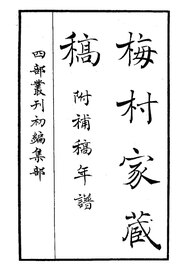 梅村家藏
稿
附補稿年譜
四部叢刊初編集部